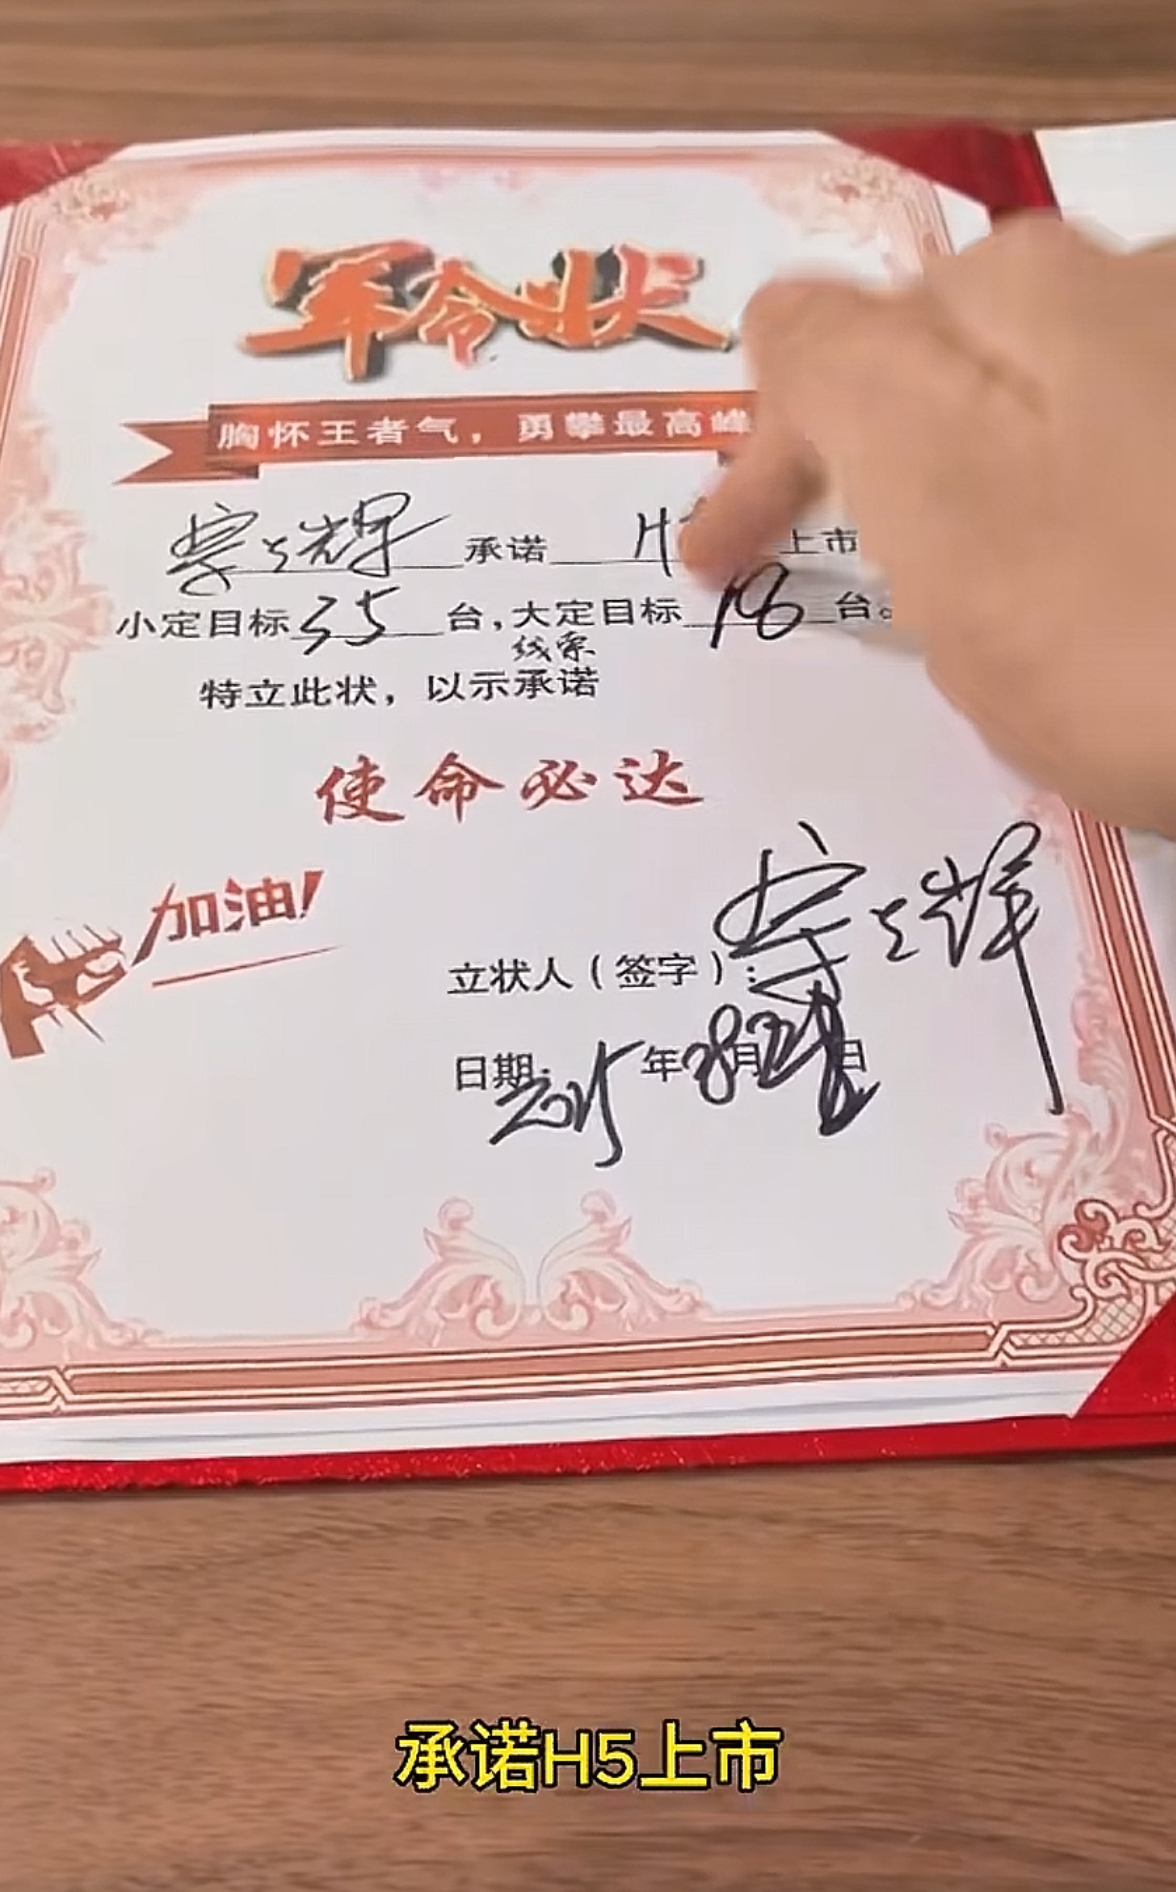 军令状
胸怀王者气，勇攀最高峰
承诺 H 上市
小定目标 35 台，大定目标 18 台。
线索
特立此状，以示承诺
使命必达
加油！
立状人（签字）：
日期：2025年8月 日
承诺H5上市